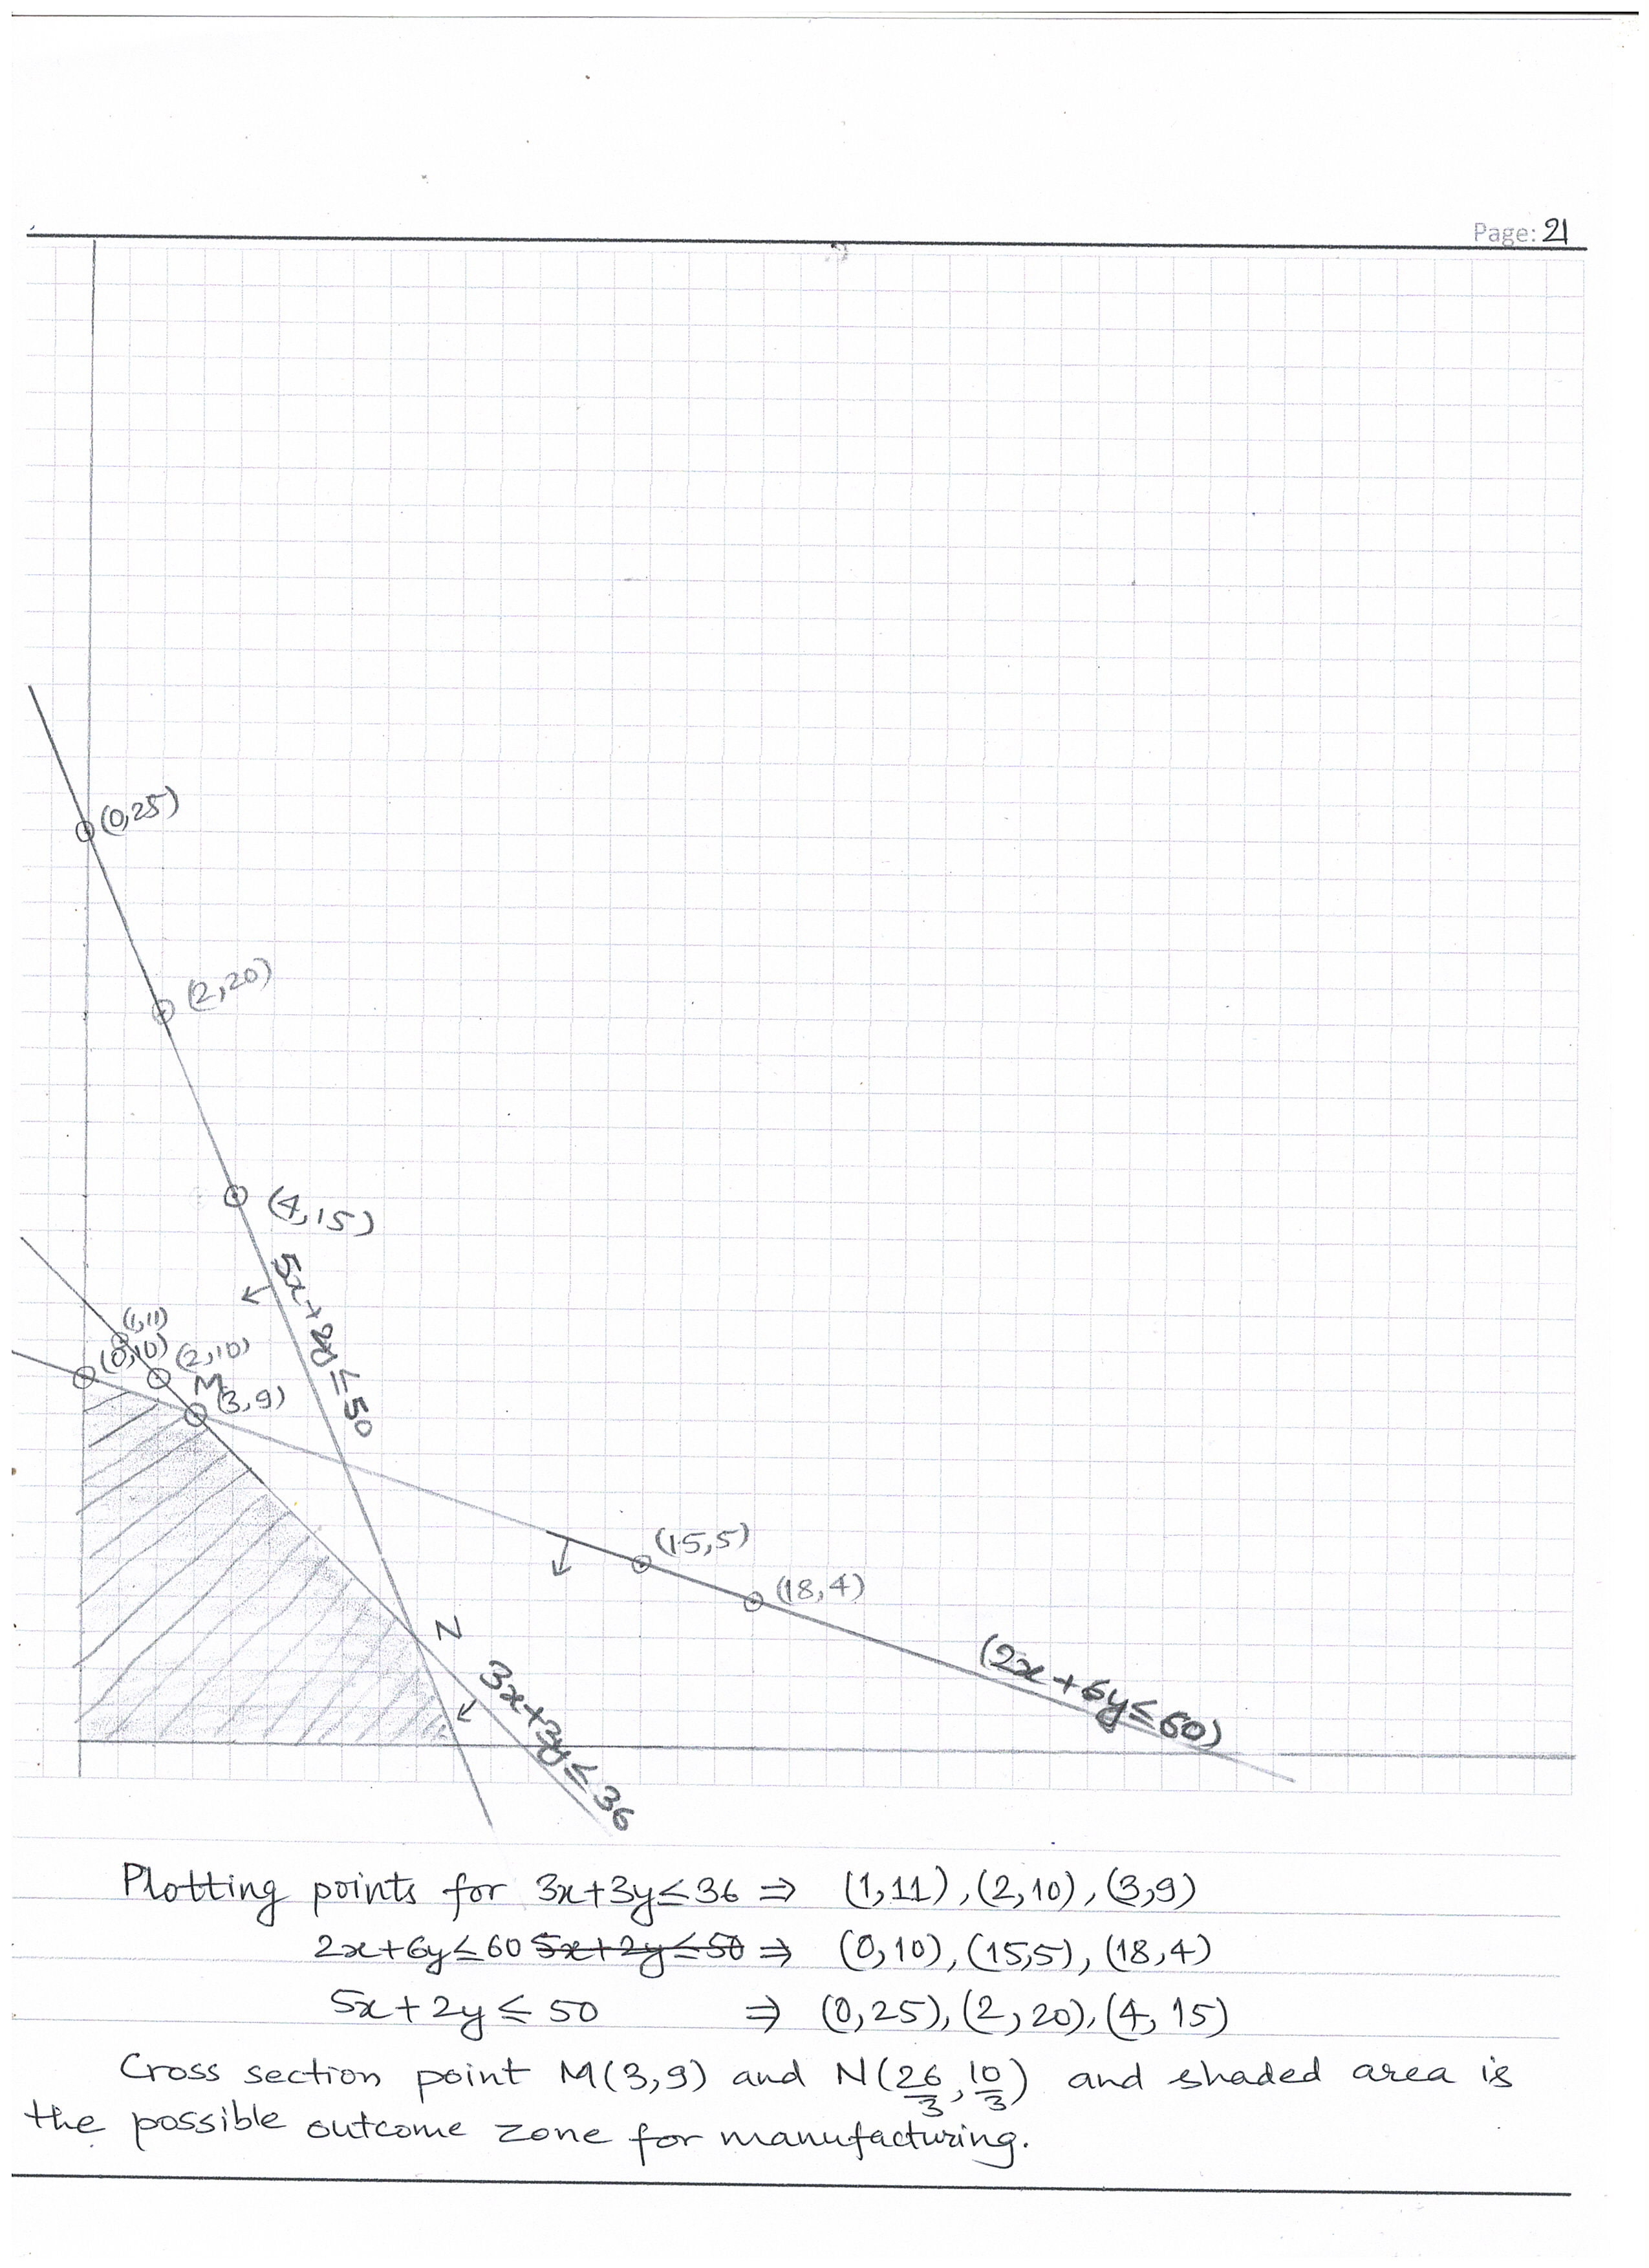 Page: 21
(0,25)
(2,20)
(4,15)
5x+2y≤50
(1,11)
(0,10) (2,10)
M
(3,9)
(15,5)
(18,4)
N
3x+3y≤36
(2x+6y≤60)
Plotting points for 3x+3y≤36 ⇒ (1,11), (2,10), (3,9)
2x+6y≤60 5x+2y≤50 ⇒ (0,10), (15,5), (18,4)
5x+2y≤50 ⇒ (0,25), (2,20), (4,15)
Cross section point M(3,9) and N(26/3, 10/3) and shaded area is
the possible outcome zone for manufacturing.